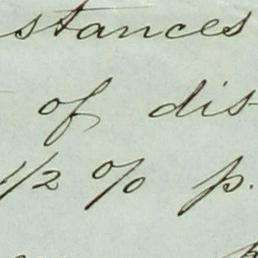 stances
of dis-
1/2 % p.